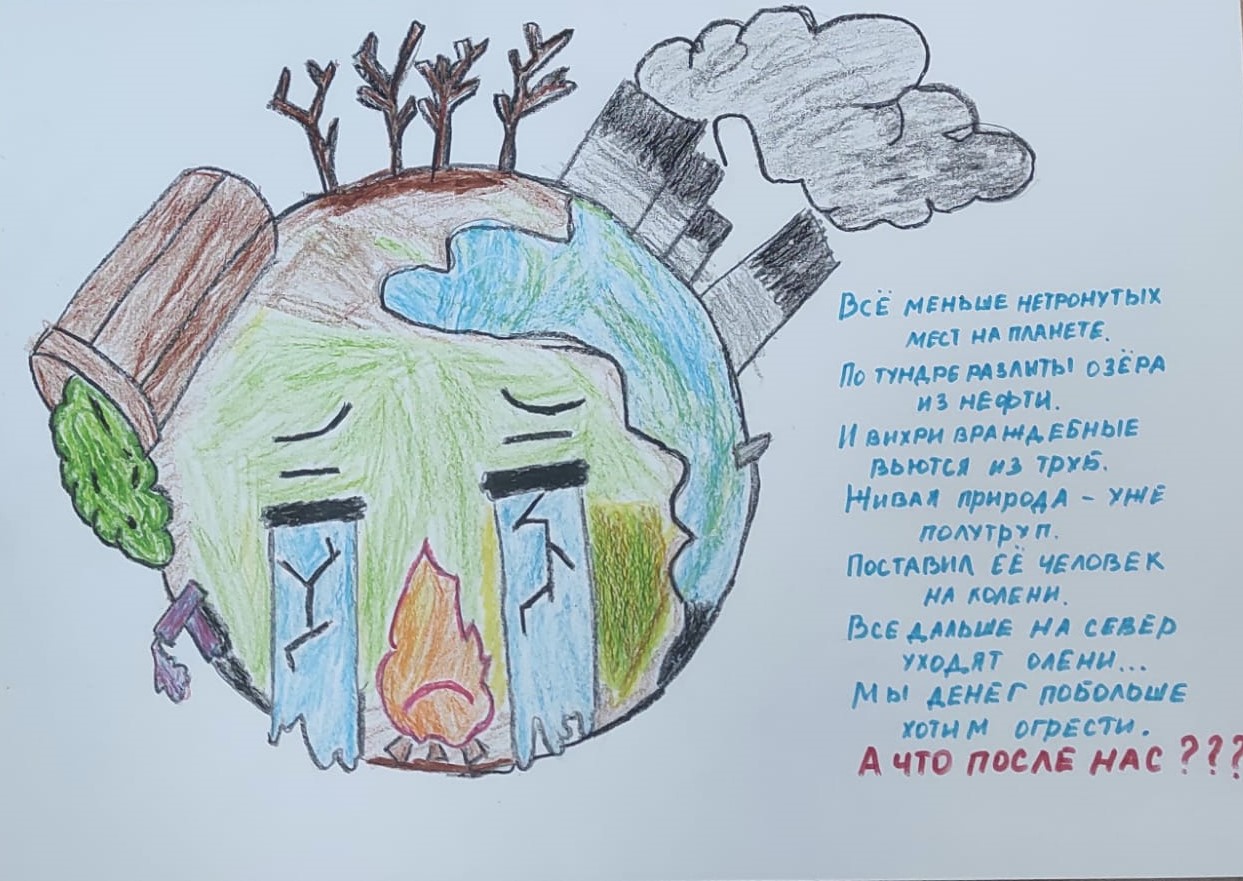 Всё меньше нетронутых
мест на планете.
По тундре разлиты озёра
из нефти.
И вихри враждебные
вьются из труб.
Живая природа - уже
полутруп.
Поставил её человек
на колени.
Все дальше на север
уходят олени...
Мы денег побольше
хотим огрести.
А что после нас ???